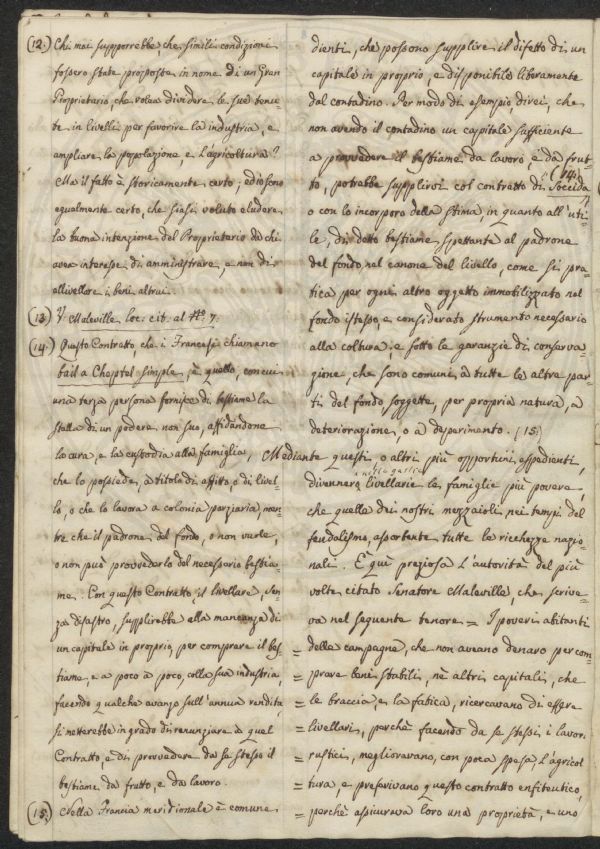 (12.) Chi mai supporrebbe, che simili condizioni
fossero state proposte in nome di un Gran
Proprietario, che volea dividere le sue tenu=
te in livelli per favorire la industria, e
ampliare la popolazione, e l'agricoltura?
Ma il fatto è storicamente certo; ed io sono
egualmente certo, che siasi voluto eludere
la buona intenzione del Proprietario da chi
avea interesse di amministrare, e non di
allivellare i beni altrui.
(13.) V. Maleville loc. cit. al Nº 7.
(14.) Questo Contratto, che i Francesi chiamano
bail a Cheptel simple, è quello, con cui
una terza persona fornisce di bestiame la
stalla di un podere non suo, affidandone
la cura, e la custodia alla famiglia,
che lo possiede, a titolo di affitto, o di livel=
lo, o che lo lavora a colonia parziaria, men=
tre che il padrone del fondo, o non vuole,
o non può provvederlo del necessario bestia=
me. Con questo Contratto il livellare, sen=
za disastro, supplirebbe alla mancanza di
un capitale in proprio, per comprare il bes=
tiame, e a poco a poco, colla sua industria,
facendo qualche avanzo sull'annua rendita,
si metterebbe in grado di renunziare a quel
Contratto, e di provvedere da se stesso il
bestiame da frutto, e da lavoro.
(15.) Nella Francia meridionale è comune
dienti, che possono supplire il difetto di un
capitale in proprio, e disponibile liberamente
dal contadino. Per modo di esempio, direi, che
non avendo il contadino un capitale sufficiente
a provvedere il bestiame da lavoro, e da frut=
to, potrebbe supplirvi col contratto di Soccida (14.)
o con lo incorporo della Stima, in quanto all'uti=
le, di detto bestiame, spettante al padrone
del fondo, nel canone del livello, come si pra=
tica per ogni altro oggetto immobilizzato nel
fondo istesso, e considerato strumento necessario
alla coltura, e sotto le garanzie di conserva=
zione, che sono comuni a tutte le altre par=
ti del fondo soggette, per propria natura, a
deteriorazione, o a deperimento. (15.)
Mediante questi, o altri più opportuni espedienti,
divennero livellarie le famiglie più povere,
che quelle dei nostri mezzaioli nei tempi del
feudalismo, assorbente tutte le ricchezze nazio=
nali. È quì preziosa l'autorità del più
volte citato Senatore Maleville, che scrive=
va nel seguente tenore = I poveri abitanti
= delle campagne, che non aveano denaro per com=
= prare beni stabili, nè altri capitali, che
= le braccia, e la fatica, ricercavano di essere
= livellari, perchè facendo da se stessi i lavori
= rustici, miglioravano, con poca spesa, l'agricol=
= tura, e preferivano questo contratto enfiteutico,
= perchè assicurava loro una proprietà, e uno